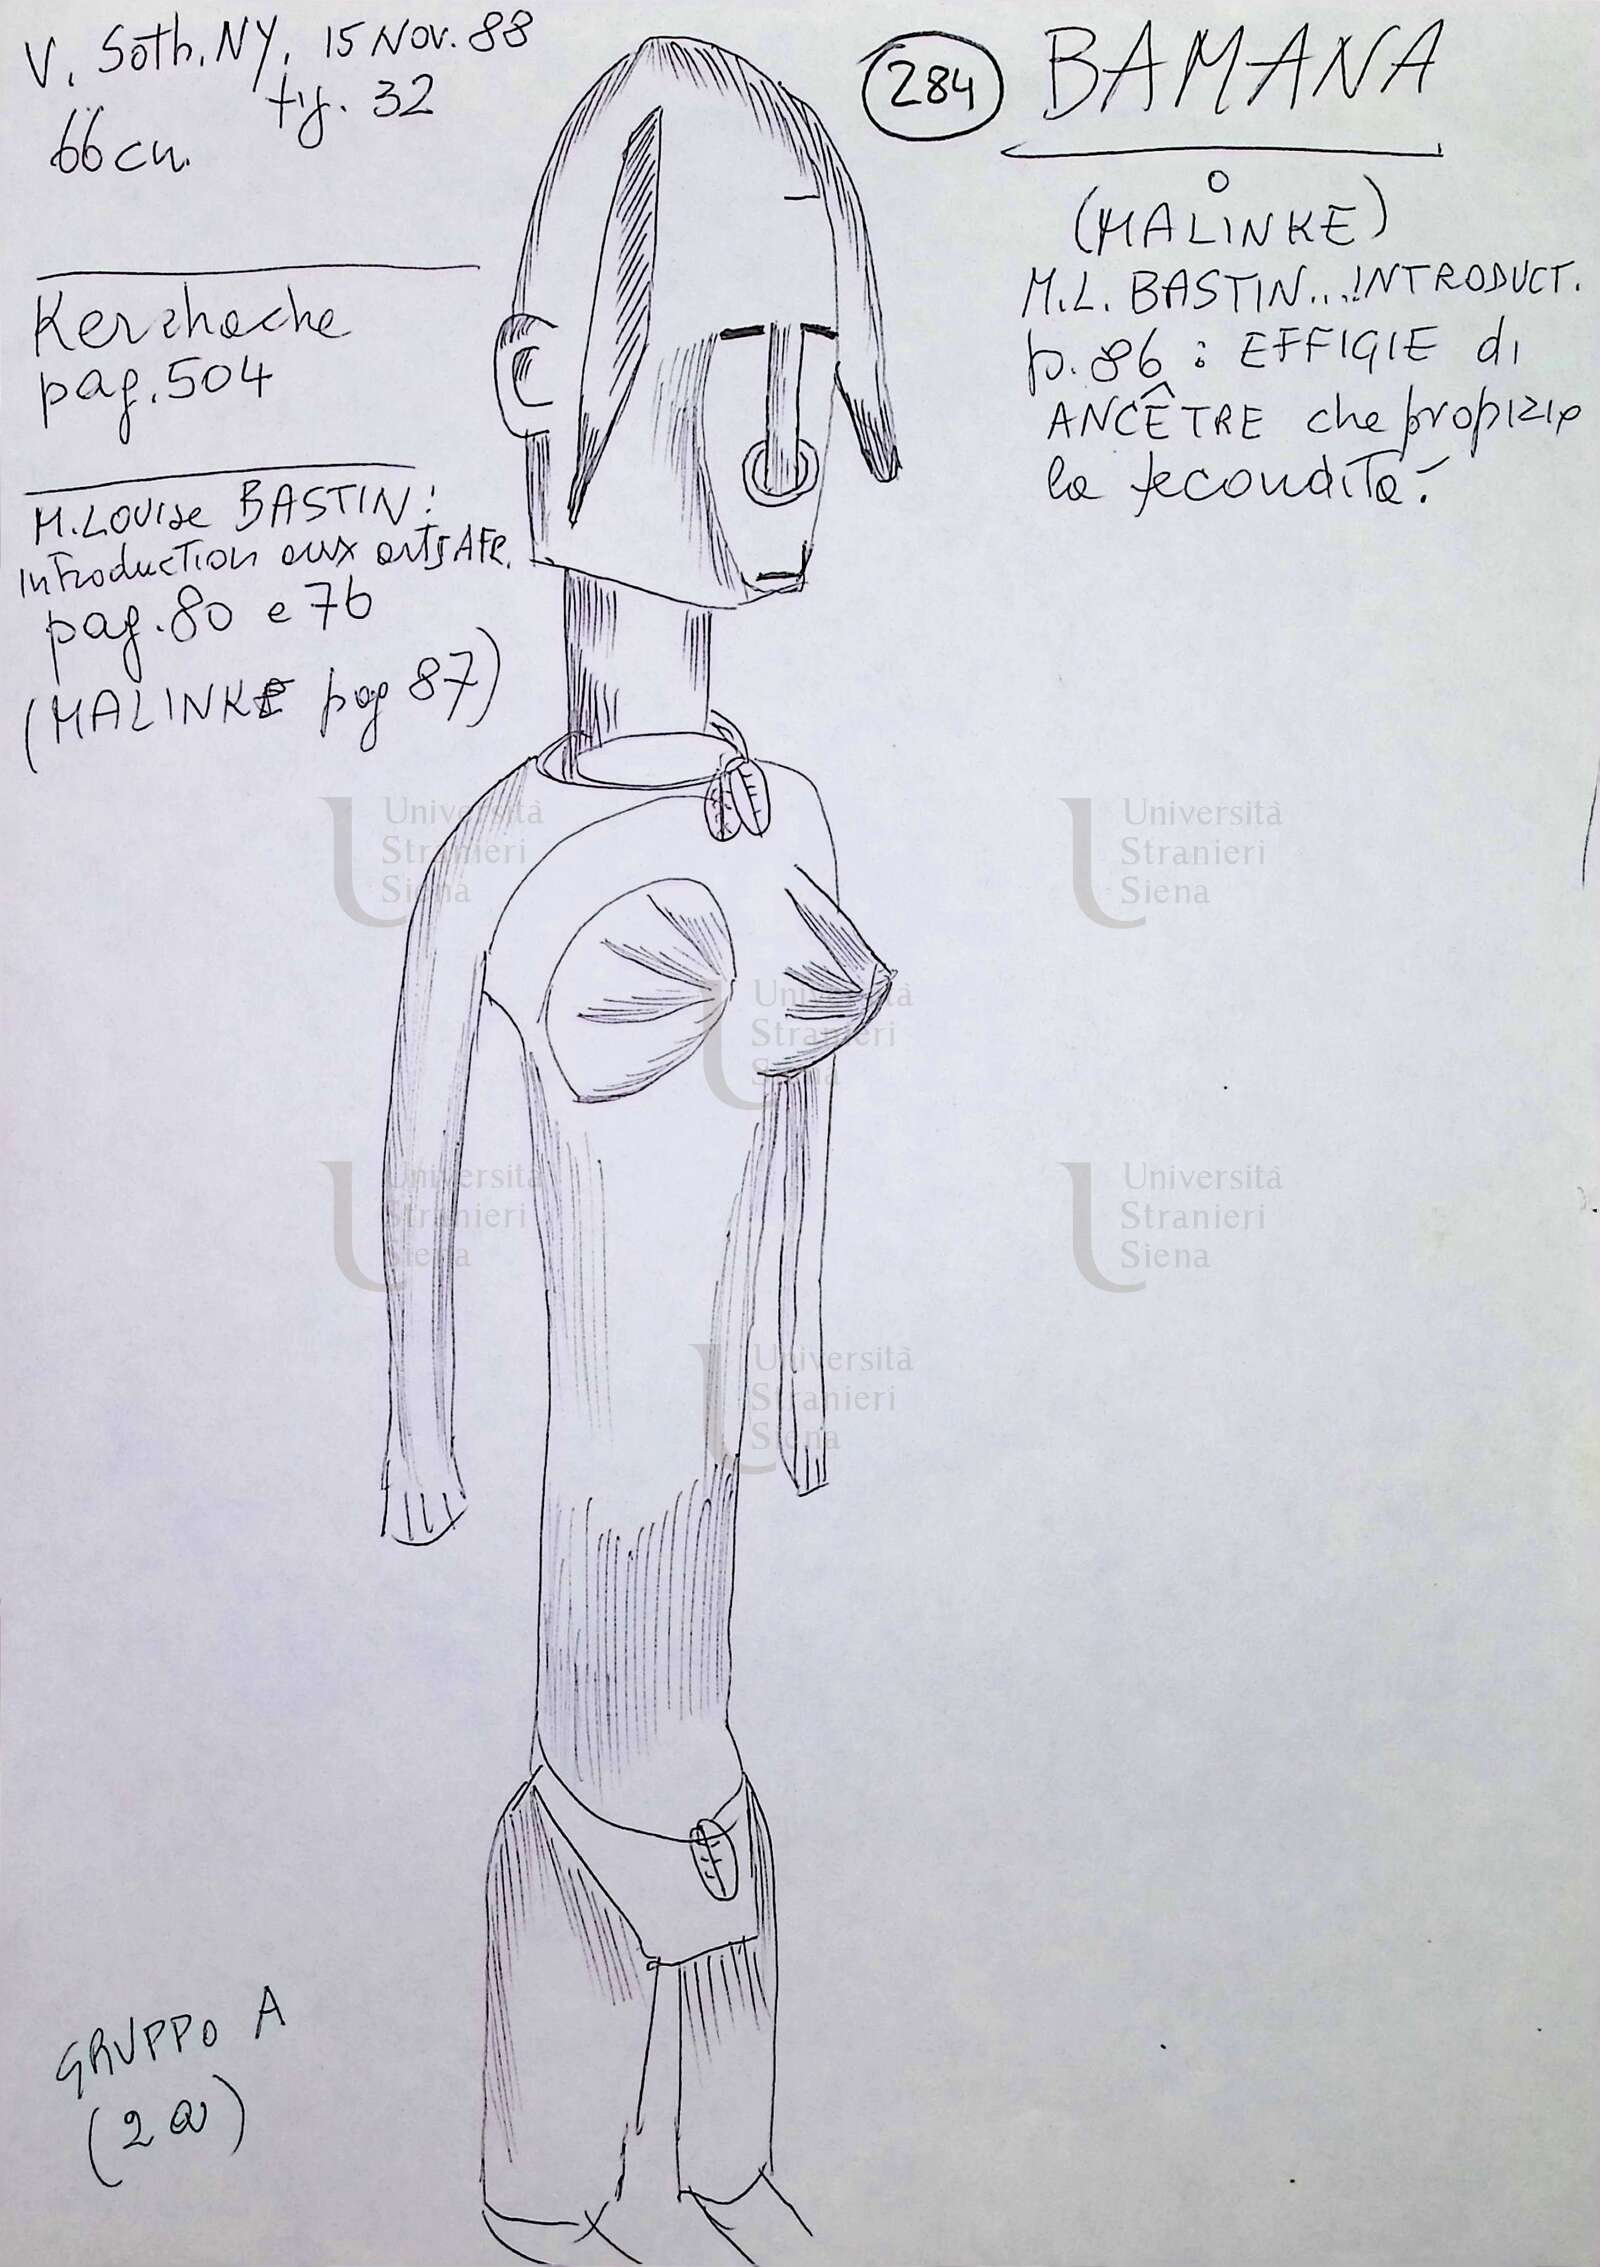 V. Soth. NY. 15 Nov. 88
fig. 32
66 cm.
Kerchache
pag. 504
M. LOUISE BASTIN:
INTRODUCTION aux arts AFR.
pag. 80 e 76
(MALINKE pag 87)
284
BAMANA
o
(MALINKE)
M.L. BASTIN... INTRODUCT.
p. 86 : EFFIGIE di
ANCÊTRE che propizia
la fecondità.
Università
Stranieri
Siena
Università
Stranieri
Siena
Università
Stranieri
Siena
Università
Stranieri
Siena
Università
Stranieri
Siena
Università
Stranieri
Siena
GRUPPO A
(2 a)